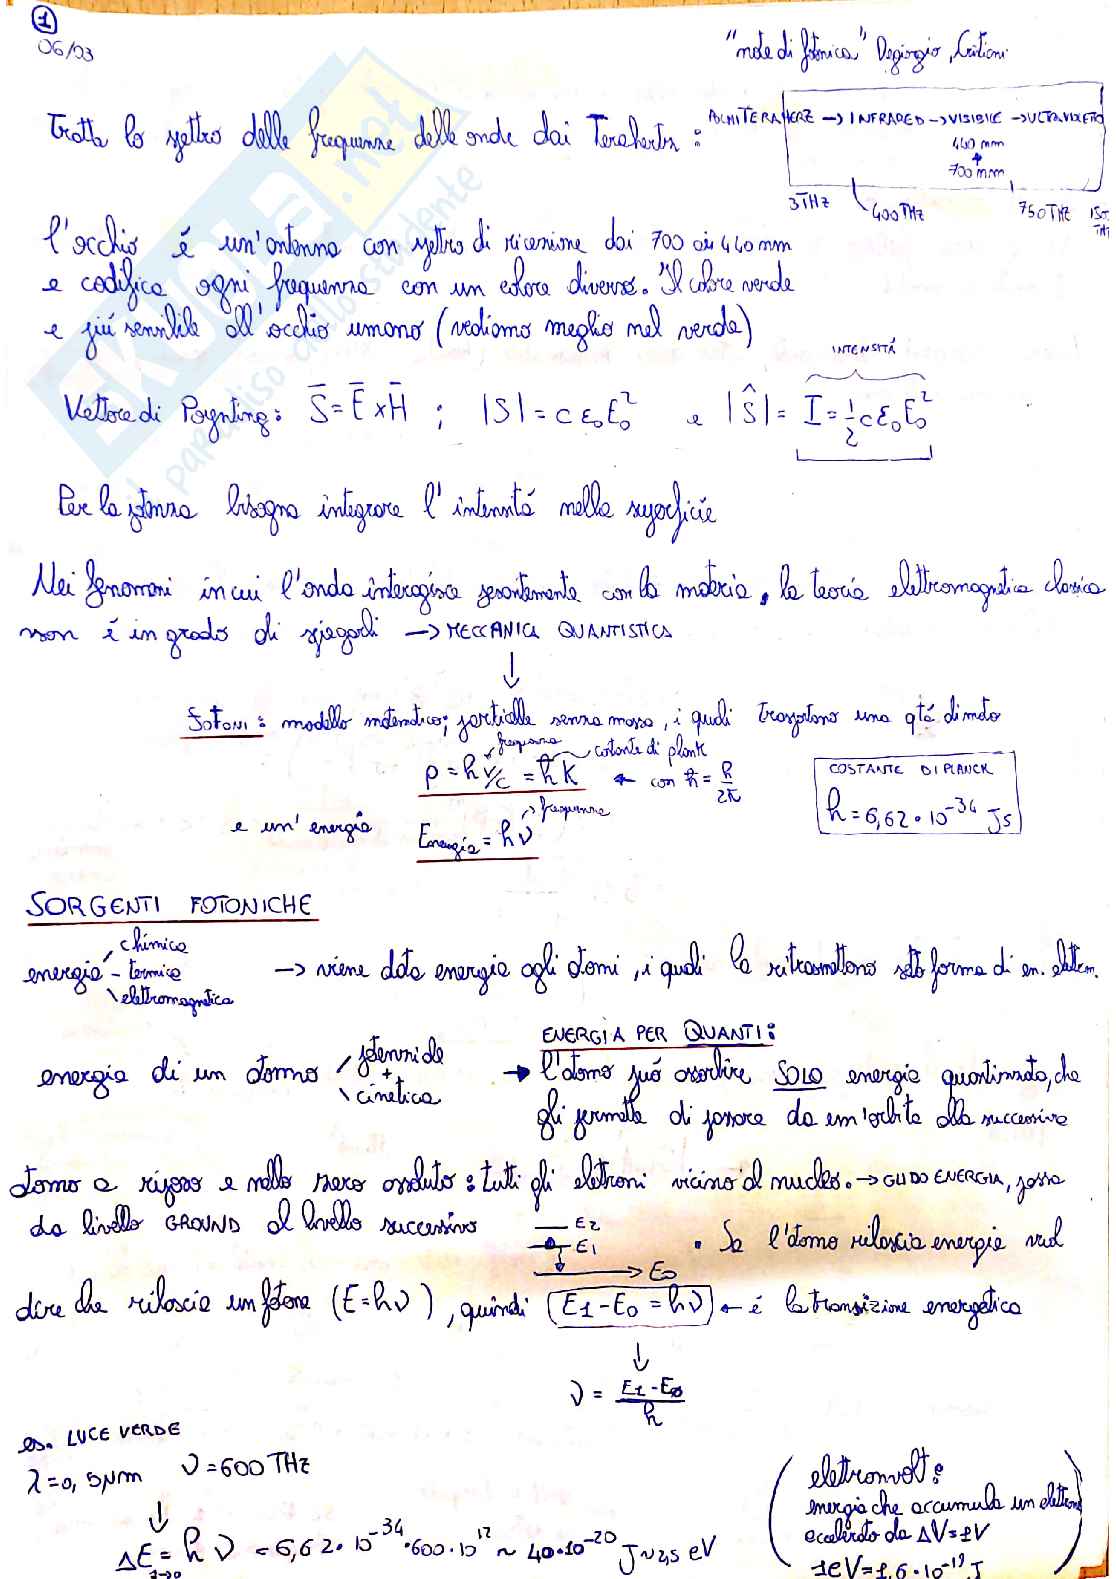 1
06/03
"note di fotonica" Degiorgio, Cristiani
Tratta lo spettro delle frequenze delle onde dai Terahertz :
POCHI TERAHERZ → INFRARED → VISIBILE → ULTRAVIOLETTO
440 nm
700 nm
3THz
400THz
750THz
l'occhio é un'antenna con spettro di ricezione dai 700 ai 440 nm
e codifica ogni frequenza con un colore diverso. Il colore verde
e piú sensibile all'occhio umano (vediamo meglio nel verde)
INTENSITÁ
Vettore di Poynting: S̄ = Ē x H̄ ; |S| = c ε₀E₀² e |Ŝ| = I = ½ c ε₀E₀²
Per la potenza bisogna integrare l'intensitá nella superficie
Nei fenomeni in cui l'onda interagisce pesantemente con la materia, la teoria elettromagnetica classica
non é in grado di spiegarli → MECCANICA QUANTISTICA
FOTONI : modello matematico; particelle senza massa, i quali trasportano una qtá di moto
frequenza
costante di plank
p = hν/c = ħK ← con ħ = h/2π
COSTANTE DI PLANCK
h = 6,62 • 10⁻³⁴ Js
frequenza
e un'energia Energia = hν
SORGENTI FOTONICHE
chimica
energia - termica → viene data energia agli atomi, i quali la ritrasmettono sotto forma di en. elettrom.
elettromagnetica
ENERGIA PER QUANTI :
energia di un atomo potenziale + cinetica → l'atomo può assorbire SOLO energia quantizzata, che
gli permette di passare da un'orbita alla successiva
atomo a riposo e nello zero assoluto : tutti gli elettroni vicino al nucleo. → GLI DO ENERGIA, passa
da livello GROUND al livello successivo
E2
E1
E₀
• Se l'atomo rilascia energia vuol
dire che rilascia un fotone (E=hν), quindi E1-E₀ = hν ← é la transizione energetica
ν = E1-E₀ / h
es. LUCE VERDE
λ=0,5μm ν=600 THz
ΔE = hν = 6,62 • 10⁻³⁴ • 600 • 10¹² ~ 40•10⁻²⁰ J ~ 2,5 eV
1→0
elettronvolt :
energia che accumula un elettrone
accelerato da ΔV=1V
1eV = 1,6 • 10⁻¹⁹ J
SKUOLA.net
il paradiso dello studente